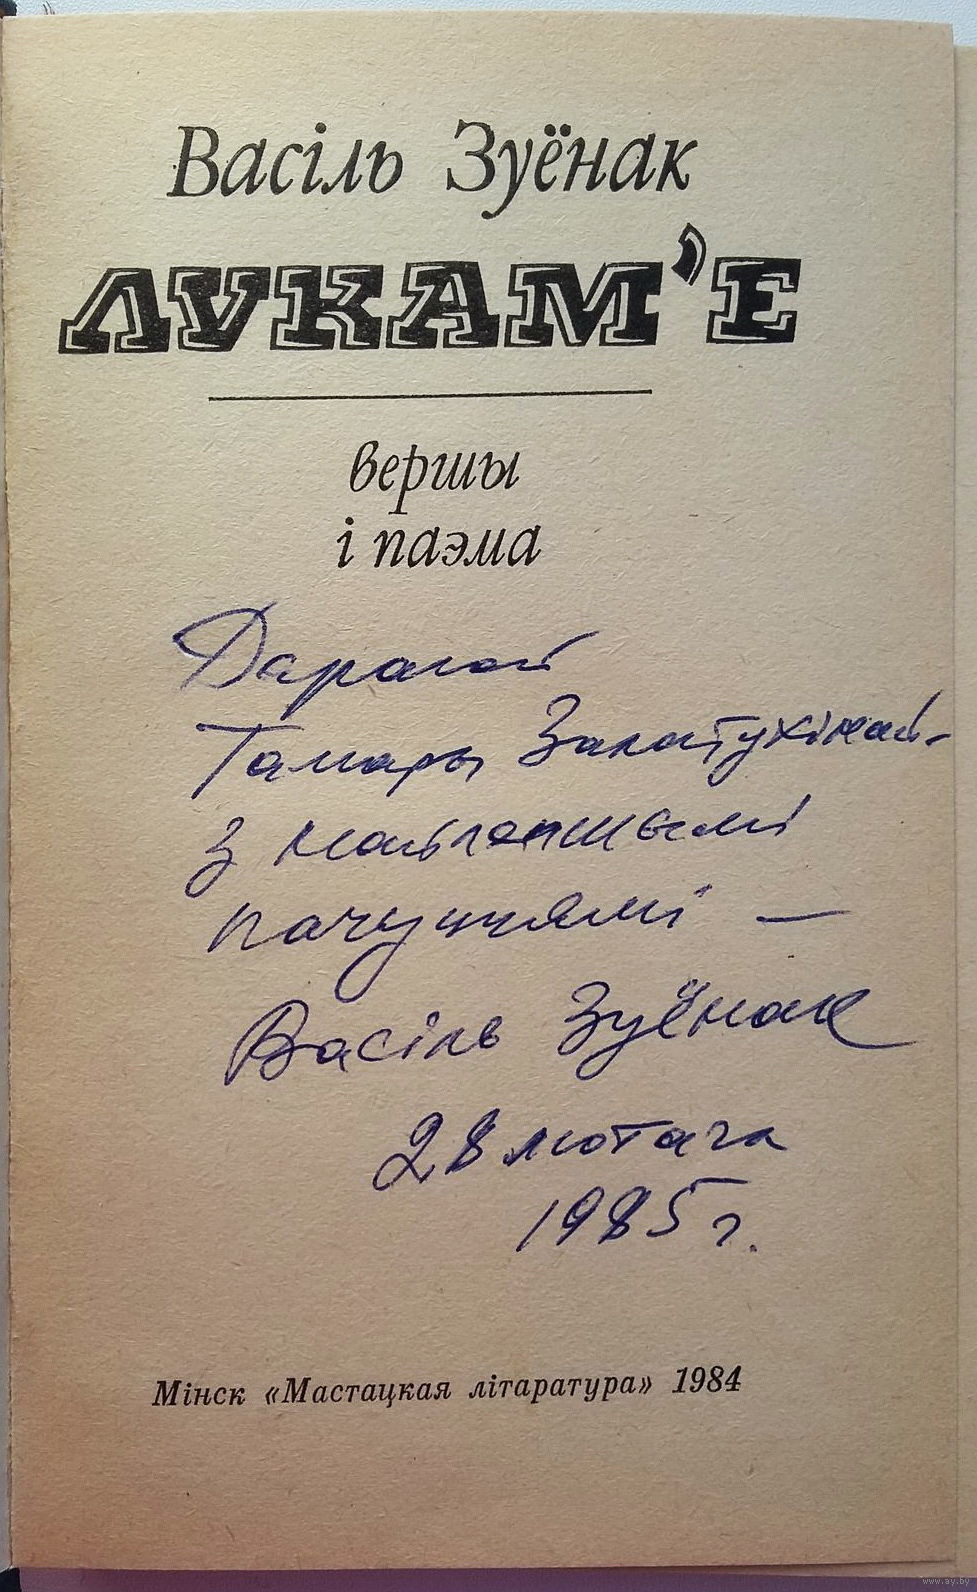 Васіль Зуёнак
ЛУКАМ'Е
вершы
і паэма
Дарагой
Тамары Залатухінай -
з найлепшымі
пачуццямі —
Васіль Зуёнак
28 лютага
1985 г.
Мінск «Мастацкая літаратура» 1984
www.ay.by